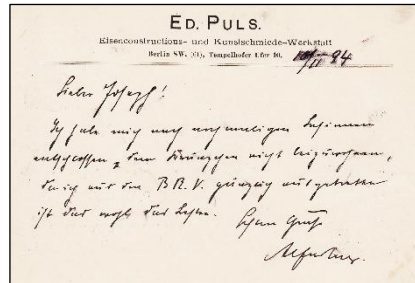 ED. PULS.
Eisenconstructions- und Kunstschmiede-Werkstatt
Berlin SW. (61), Tempelhofer Ufer 10.
/II 94
Lieber Joseph!
Ich habe mich nach nochmaligem Besinnen
entschlossen, dem nicht beizuwohnen,
da ich aus dem B.R.V. gänzlich ausgetreten
ist das wohl das Beste.
Gruß